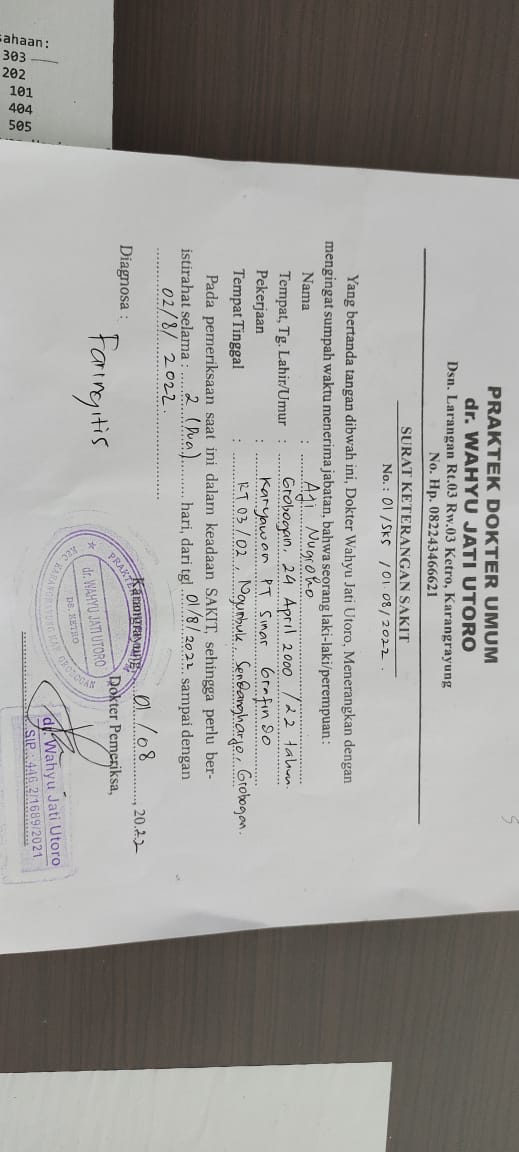 sahaan:
303
202
101
404
505
PRAKTEK DOKTER UMUM
dr. WAHYU JATI UTORO
Dsn. Larangan Rt.03 Rw.03 Ketro, Karangrayung
No. Hp. 082243466621
SURAT KETERANGAN SAKIT
No.: 01/SKS/01 08/2022.
Yang bertanda tangan dibwah ini, Dokter Wahyu Jati Utoro, Menerangkan dengan
mengingat sumpah waktu menerima jabatan, bahwa seorang laki-laki/perempuan :
Nama : Aji Nugroho
Tempat, Tg. Lahir/Umur : Grobogan, 24 April 2000 / 22 tahun
Pekerjaan : Karyawan PT Sinar Grafindo
Tempat Tinggal : RT 03/02, Sendangharjo, Grobogan.
Pada pemeriksaan saat ini dalam keadaan SAKIT, sehingga perlu ber-
istirahat selama : 2 (Dua) hari, dari tgl 01/8/2022 sampai dengan
02/8/2022.
Karangrayung, 01/08, 2022
Diagnosa : Dokter Pemeriksa,
Faringitis
PRAKTEK
dr. WAHYU JATI UTORO
DS. KETRO
KEC. KARANGRAYUNG KAB. GROBOGAN
dr. Wahyu Jati Utoro
SIP : 446.2/1689/2021